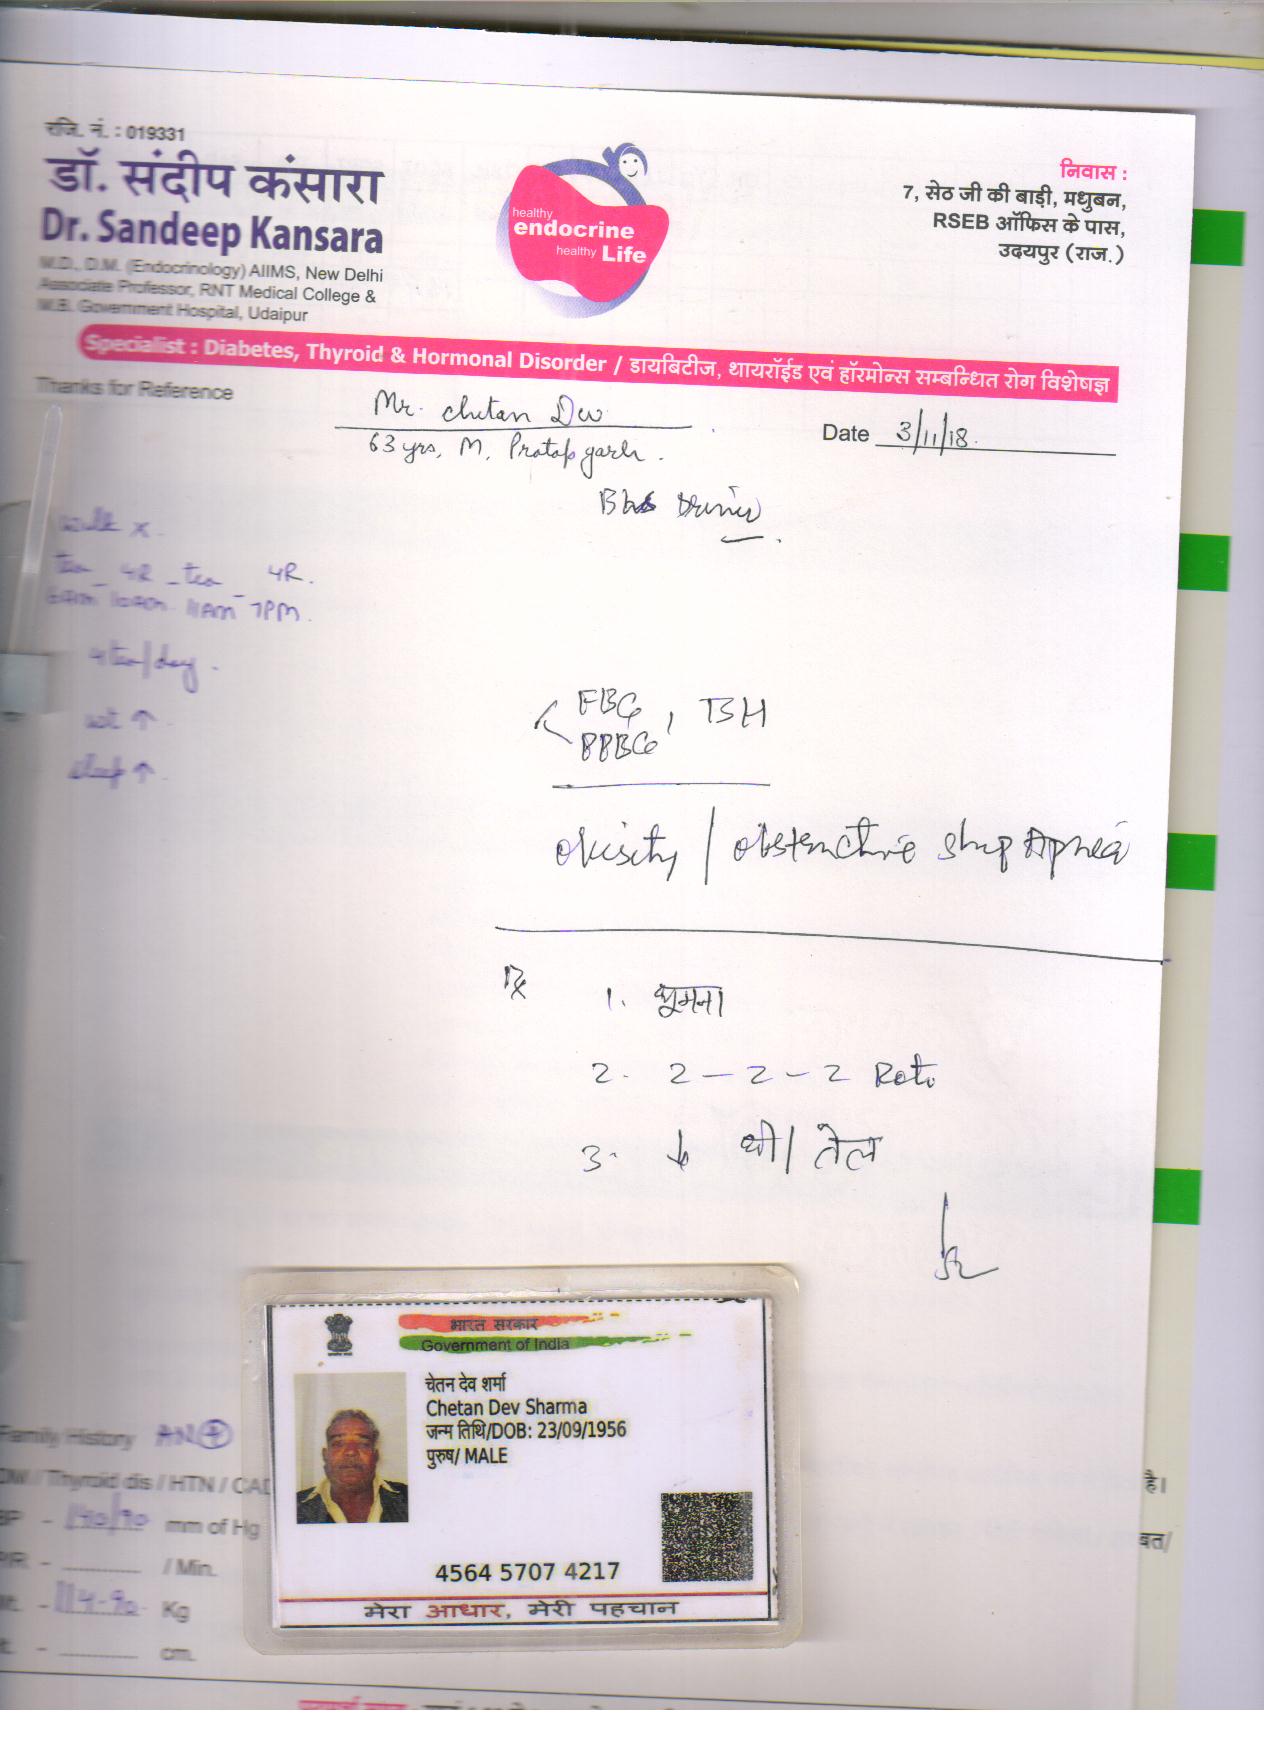 रजि. नं. : 019331
डॉ. संदीप कंसारा
Dr. Sandeep Kansara
M.D., D.M. (Endocrinology) AIIMS, New Delhi
Associate Professor, RNT Medical College &
M.B. Government Hospital, Udaipur
healthy
endocrine
healthy Life
निवास :
7, सेठ जी की बाड़ी, मधुबन,
RSEB ऑफिस के पास,
उदयपुर (राज.)
Specialist : Diabetes, Thyroid & Hormonal Disorder / डायबिटीज, थायरॉईड एवं हॉरमोन्स सम्बन्धित रोग विशेषज्ञ
Thanks for Reference
Mr. Chetan Dev
Date 3/11/18
63 yrs, M, Pratapgarh.
Bus Driver
walk x.
tea - 4R - tea - 4R.
6AM 10AM 11AM 7PM.
4 tea/day.
wt ↑.
sleep ↑.
FBG, TSH
PPBG
obesity / obstructive sleep Apnea
Rx
1. घूमना
2. 2 – 2 – 2 Roti
3. ↓ घी / तेल
भारत सरकार
Government of India
चेतन देव शर्मा
Chetan Dev Sharma
जन्म तिथि/DOB: 23/09/1956
पुरुष/ MALE
4564 5707 4217
मेरा आधार, मेरी पहचान
Family History
DM / Thyroid dis / HTN / CAD
BP - 140/90 mm of Hg
/ Min.
Wt. - 114.90 Kg
cm.
है।